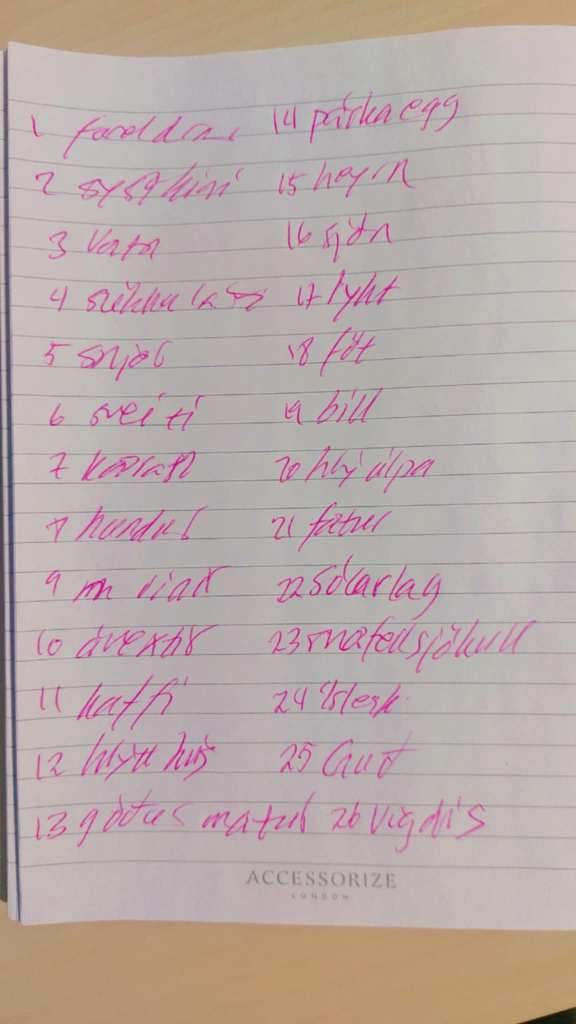 1 foreldrar 14 páskaegg
2 systkini 15 heyrn
3 vata 16 sjón
4 súkkulaði 17 lykt
5 snjór 18 föt
6 sveiti 19 bíll
7 20 hljálpa
8 hundur 21 fætur
9 22 sólarlag
10 23 snæfellsjökull
11 kaffi 24 íslensk
12 hlýtt hús 25 Guð
13 góður matur 26 vigdís
ACCESSORIZE
LONDON